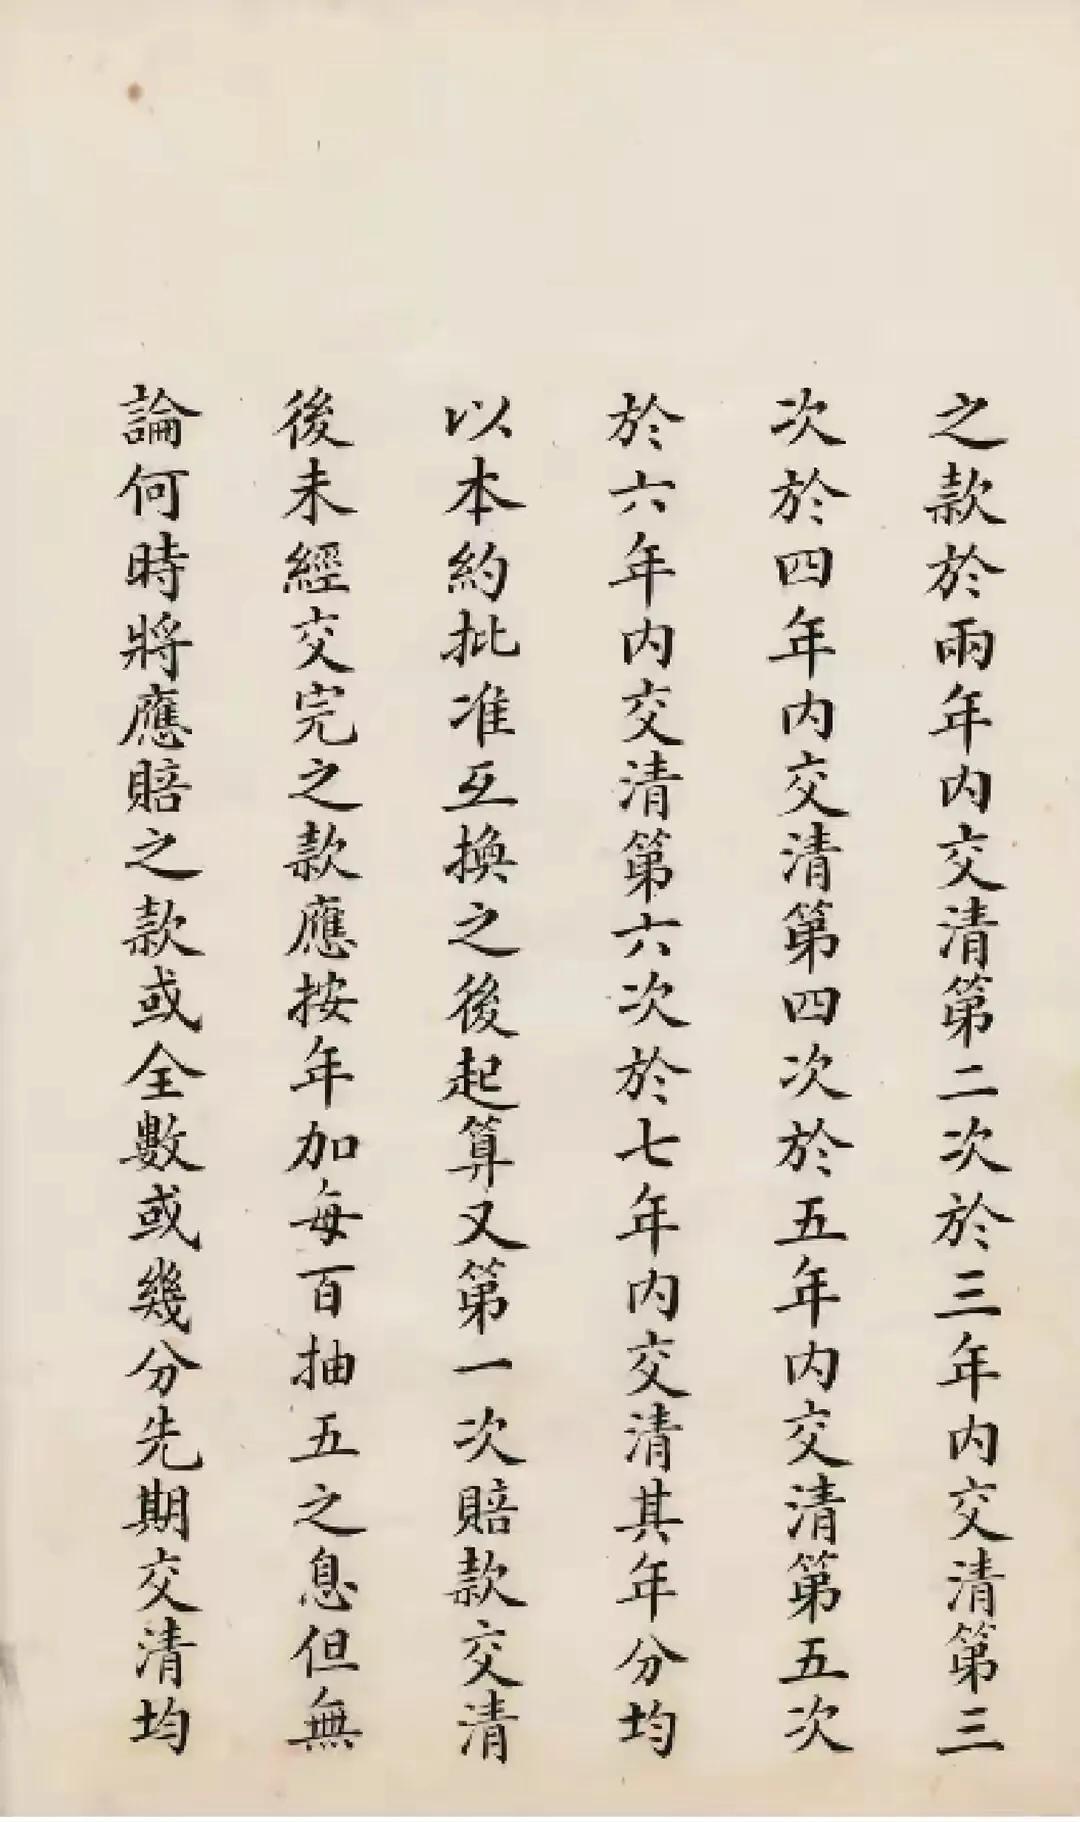 之款於兩年内交清第二次於三年内交清第三
次於四年内交清第四次於五年内交清第五次
於六年内交清第六次於七年内交清其年分均
以本約批准互換之後起算又第一次賠款交清
後未經交完之款應按年加每百抽五之息但無
論何時將應賠之款或全數或幾分先期交清均